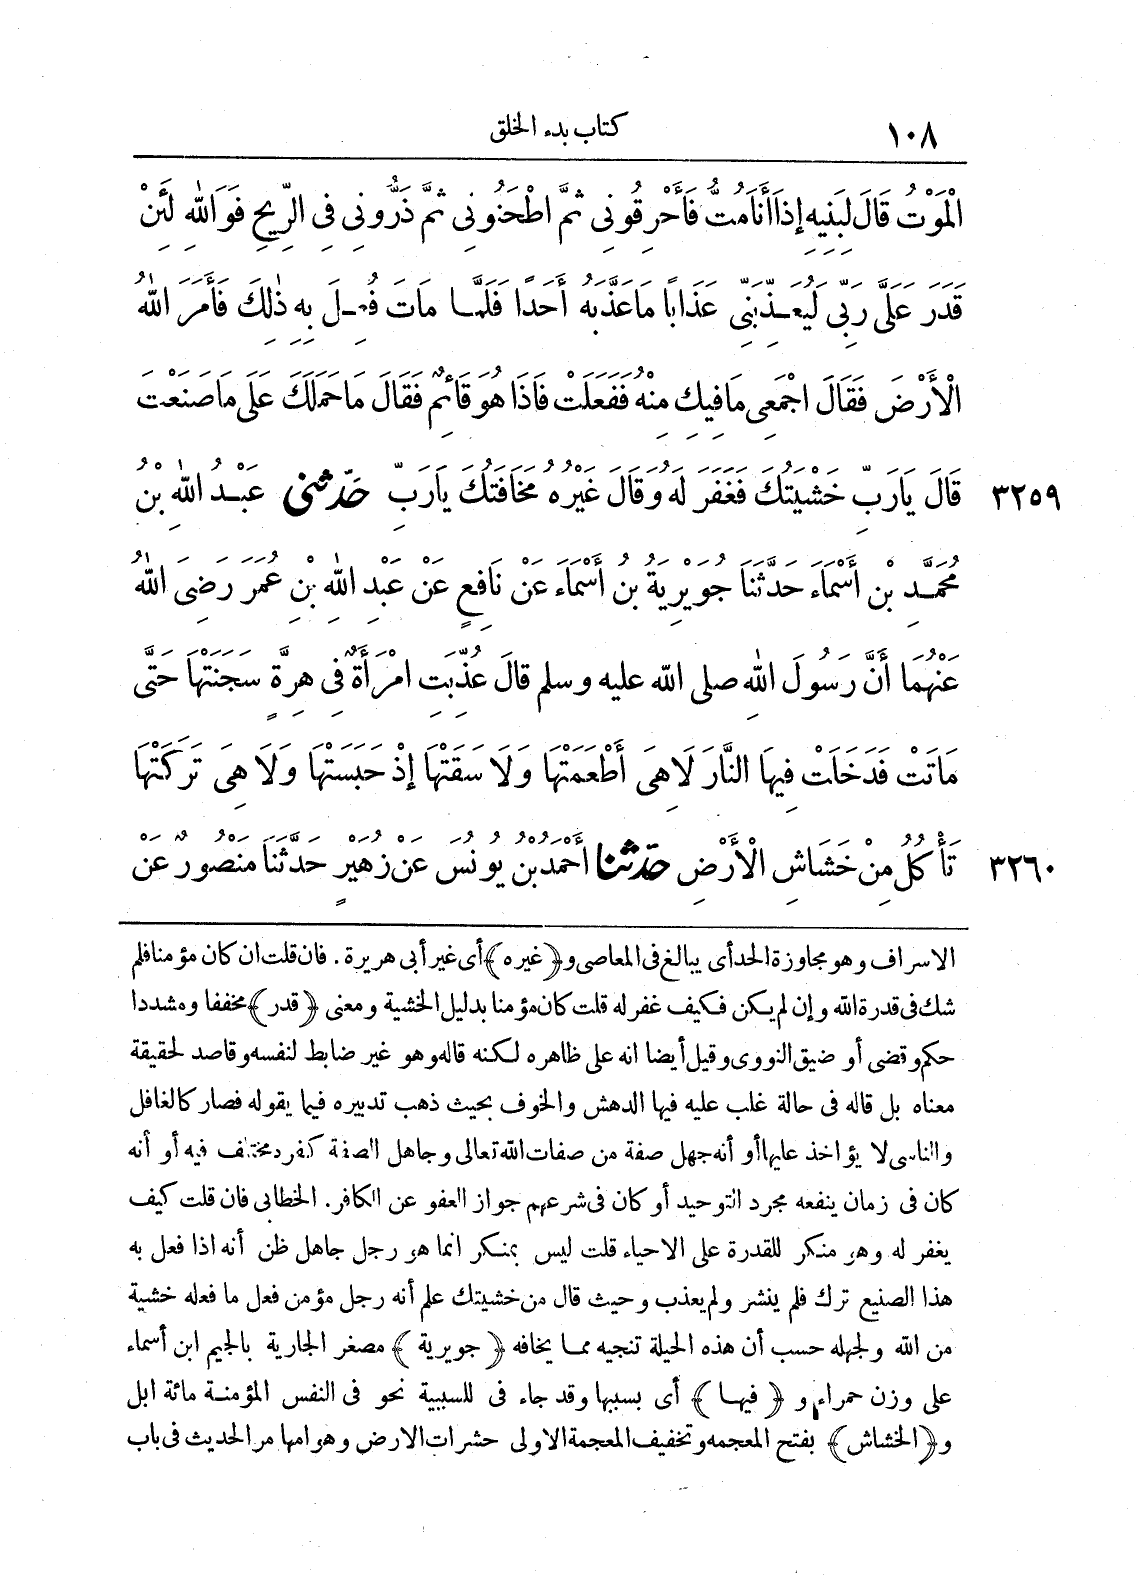 ١٠٨ كتاب بدء الخلق
الْمَوْتُ قَالَ لِبَنِيهِ إِذَا أَنَا مُتُّ فَأَحْرِقُونِي ثُمَّ اطْحَنُونِي ثُمَّ ذَرُّونِي فِي الرِّيحِ فَوَاللهِ لَئِنْ
قَدَرَ عَلَىَّ رَبِّي لَيُعَذِّبَنِّي عَذَابًا مَا عَذَّبَهُ أَحَدًا فَلَمَّا مَاتَ فُعِلَ بِهِ ذٰلِكَ فَأَمَرَ اللهُ
الْأَرْضَ فَقَالَ اجْمَعِي مَا فِيكِ مِنْهُ فَفَعَلَتْ فَاذَا هُوَ قَائِمٌ فَقَالَ مَا حَمَلَكَ عَلَى مَا صَنَعْتَ
٣٢٥٩ قَالَ يَارَبِّ خَشْيَتُكَ فَغَفَرَ لَهُ وَقَالَ غَيْرُهُ مَخَافَتُكَ يَارَبِّ حَدَّثَنِى عَبْدُ اللهِ بْنُ
مُحَمَّدِ بْنِ أَسْمَاءَ حَدَّثَنَا جُوَيْرِيَةُ بْنُ أَسْمَاءَ عَنْ نَافِعٍ عَنْ عَبْدِ اللهِ بْنِ عُمَرَ رَضِىَ اللهُ
عَنْهُمَا أَنَّ رَسُولَ اللهِ صلى الله عليه وسلم قَالَ عُذِّبَتِ امْرَأَةٌ فِى هِرَّةٍ سَجَنَتْهَا حَتَّى
مَاتَتْ فَدَخَلَتْ فِيهَا النَّارَ لَا هِىَ أَطْعَمَتْهَا وَلَا سَقَتْهَا إِذْ حَبَسَتْهَا وَلَا هِىَ تَرَكَتْهَا
٣٢٦٠ تَأْكُلُ مِنْ خَشَاشِ الْأَرْضِ حَدَّثَنَا أَحْمَدُ بْنُ يُونُسَ عَنْ زُهَيْرٍ حَدَّثَنَا مَنْصُورٌ عَنْ
الاسراف وهو مجاوزة الحد أى يبالغ فى المعاصى و﴿غيره﴾ أى غير أبى هريرة . فان قلت ان كان مؤمنا فلم
شك فى قدرة الله وإن لم يكن فكيف غفر له قلت كان مؤمنا بدليل الخشية ومعنى ﴿قدر﴾ مخففا ومشددا
حكم وقضى أو ضيق النووى وقيل أيضا انه على ظاهره لكنه قاله وهو غير ضابط لنفسه وقاصد لحقيقة
معناه بل قاله فى حالة غلب عليه فيها الدهش والخوف بحيث ذهب تدبيره فيما يقوله فصار كالغافل
والناسى لا يؤاخذ عليها أو أنه جهل صفة من صفات الله تعالى وجاهل الصفة كفره مختلف فيه أو أنه
كان فى زمان ينفعه مجرد التوحيد أو كان فى شرعهم جواز العفو عن الكافر. الخطابى فان قلت كيف
يغفر له وهو منكر للقدرة على الاحياء قلت ليس بمنكر انما هو رجل جاهل ظن أنه اذا فعل به
هذا الصنيع ترك فلم ينشر ولم يعذب وحيث قال من خشيتك علم أنه رجل مؤمن فعل ما فعله خشية
من الله ولجهله حسب أن هذه الحيلة تنجيه مما يخافه ﴿جويرية﴾ مصغر الجارية بالجيم ابن أسماء
على وزن حمراء و﴿فيها﴾ أى بسببها وقد جاء فى للسببية نحو فى النفس المؤمنة مائة ابل
و﴿الخشاش﴾ بفتح المعجمه وتخفيف المعجمة الاولى حشرات الارض وهوامها مر الحديث فى باب